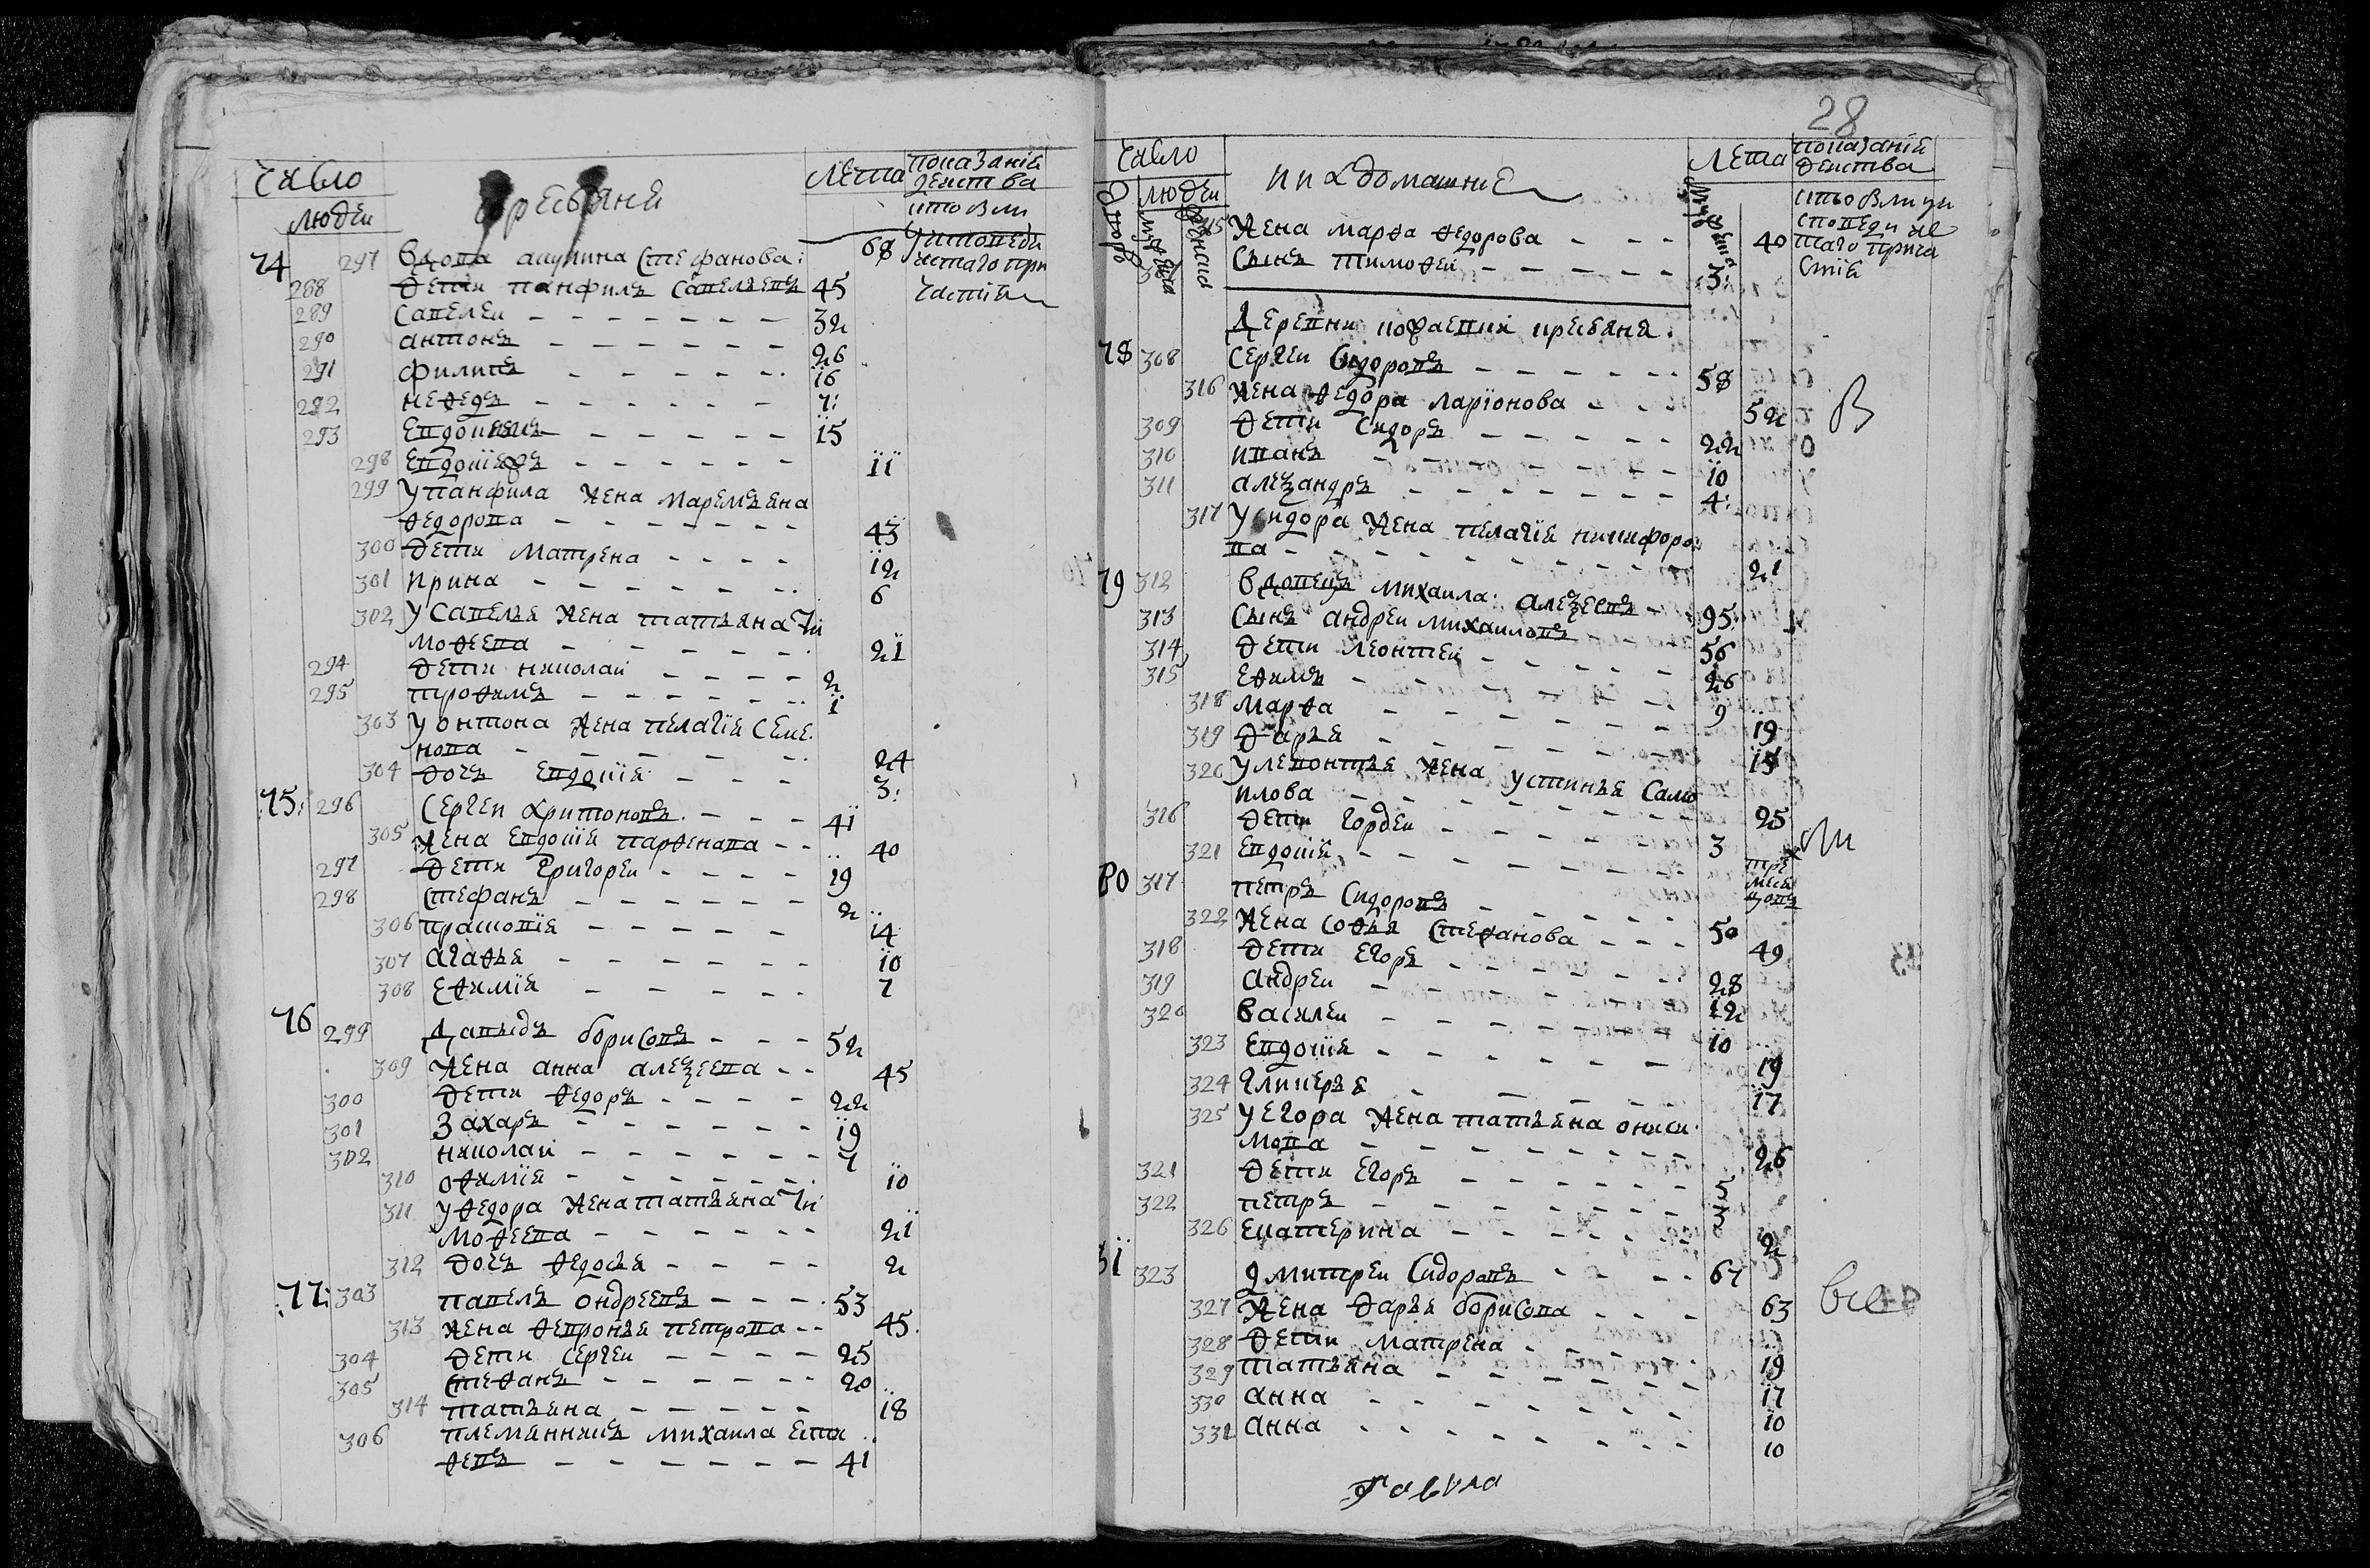 Число
людеи
кресьяня
Лета
показаніи
деиства
кто были
у исповеди
и стаго при
частія
74 297 Вдова акулина Стефанова: 68
288 дети панфилъ Савельевъ 45
289 Савелеи 32
290 антонъ 26
291 филипъ 16
292 нефедъ 7:
293 Евдокимъ 15
298 Евдокія 11
299 У панфила жена маремьяна
федорова 43
300 дети матрена 12
301 ирина 6
302 У Савелья жена татьяна ти
мофеева 21
294 дети николаи 2
295 трофимъ 1
303 У онтона жена пелагія Семе
нова 24
304 дочь Евдокія 3:
75: 296 Сергеи харитоновъ 41
305 жена Евдокія парфенава 40
297 дети григореи 19
298 Стефанъ 2
306 праскопія 14
307 агафья 10
308 Ефимія 7
76 299 Давыдъ борисовъ 52
309 жена анна алеѯеева 45
300 дети федоръ 22
301 Захаръ 19
302 николаи 7
310 офимія 10
311 У федора жена татьяна ти
мофеева 21
312 дочь федосья 2
77: 303 павелъ ондреевъ 53
313 жена февронья петрова 45
304 дети Сергеи 25
305 Стефанъ 20
314 татьяна 18
306 племянникъ михаила Ети
февъ 41
28
Число
людеи
дворо
мужеска
женска
и их домашние
Лета
показаніи
деиства
кто были у и
споведи и с
таго прича
стія
315 жена марфа федорова 40
Сынъ тимофеи 3:
Деревни кресьяня.
78 308 Сергеи Сидоровъ 58
316 жена федора ларіонова 52
В
309 дети Сидоръ 22
310 иванъ 10
311 алеѯандръ 4:
317 У сидора жена пелагія никифоро
ва 21
79 312 Вдовецъ михаила алеѯеевъ 95:
313 Сынъ андреи михаиловъ 56
314 дети леонтеи 26
315 Ефимъ 9
318 марфа 19
319 дарья 15
320 У леонтья жена устинья Само
илова 25
316 дети гордеи 3
321 Евдокія тре
меся
цовъ
80 317 петръ Сидоровъ 50
322 жена Софья Стефанова 49
318 дети Егоръ 28
319 андреи 12
320 Василеи 10
323 Евдокія 19
324 гликерья 17
325 У Егора жена татьяна ониси
мова 26
321 дети Егоръ 5
322 петръ 3
326 Екатерина 2
81 323 дмитреи Сидоровъ 67
327 жена дарья борисова 63
все
328 дети матрена 19
329 татьяна 17
330 анна 10
331 анна 10